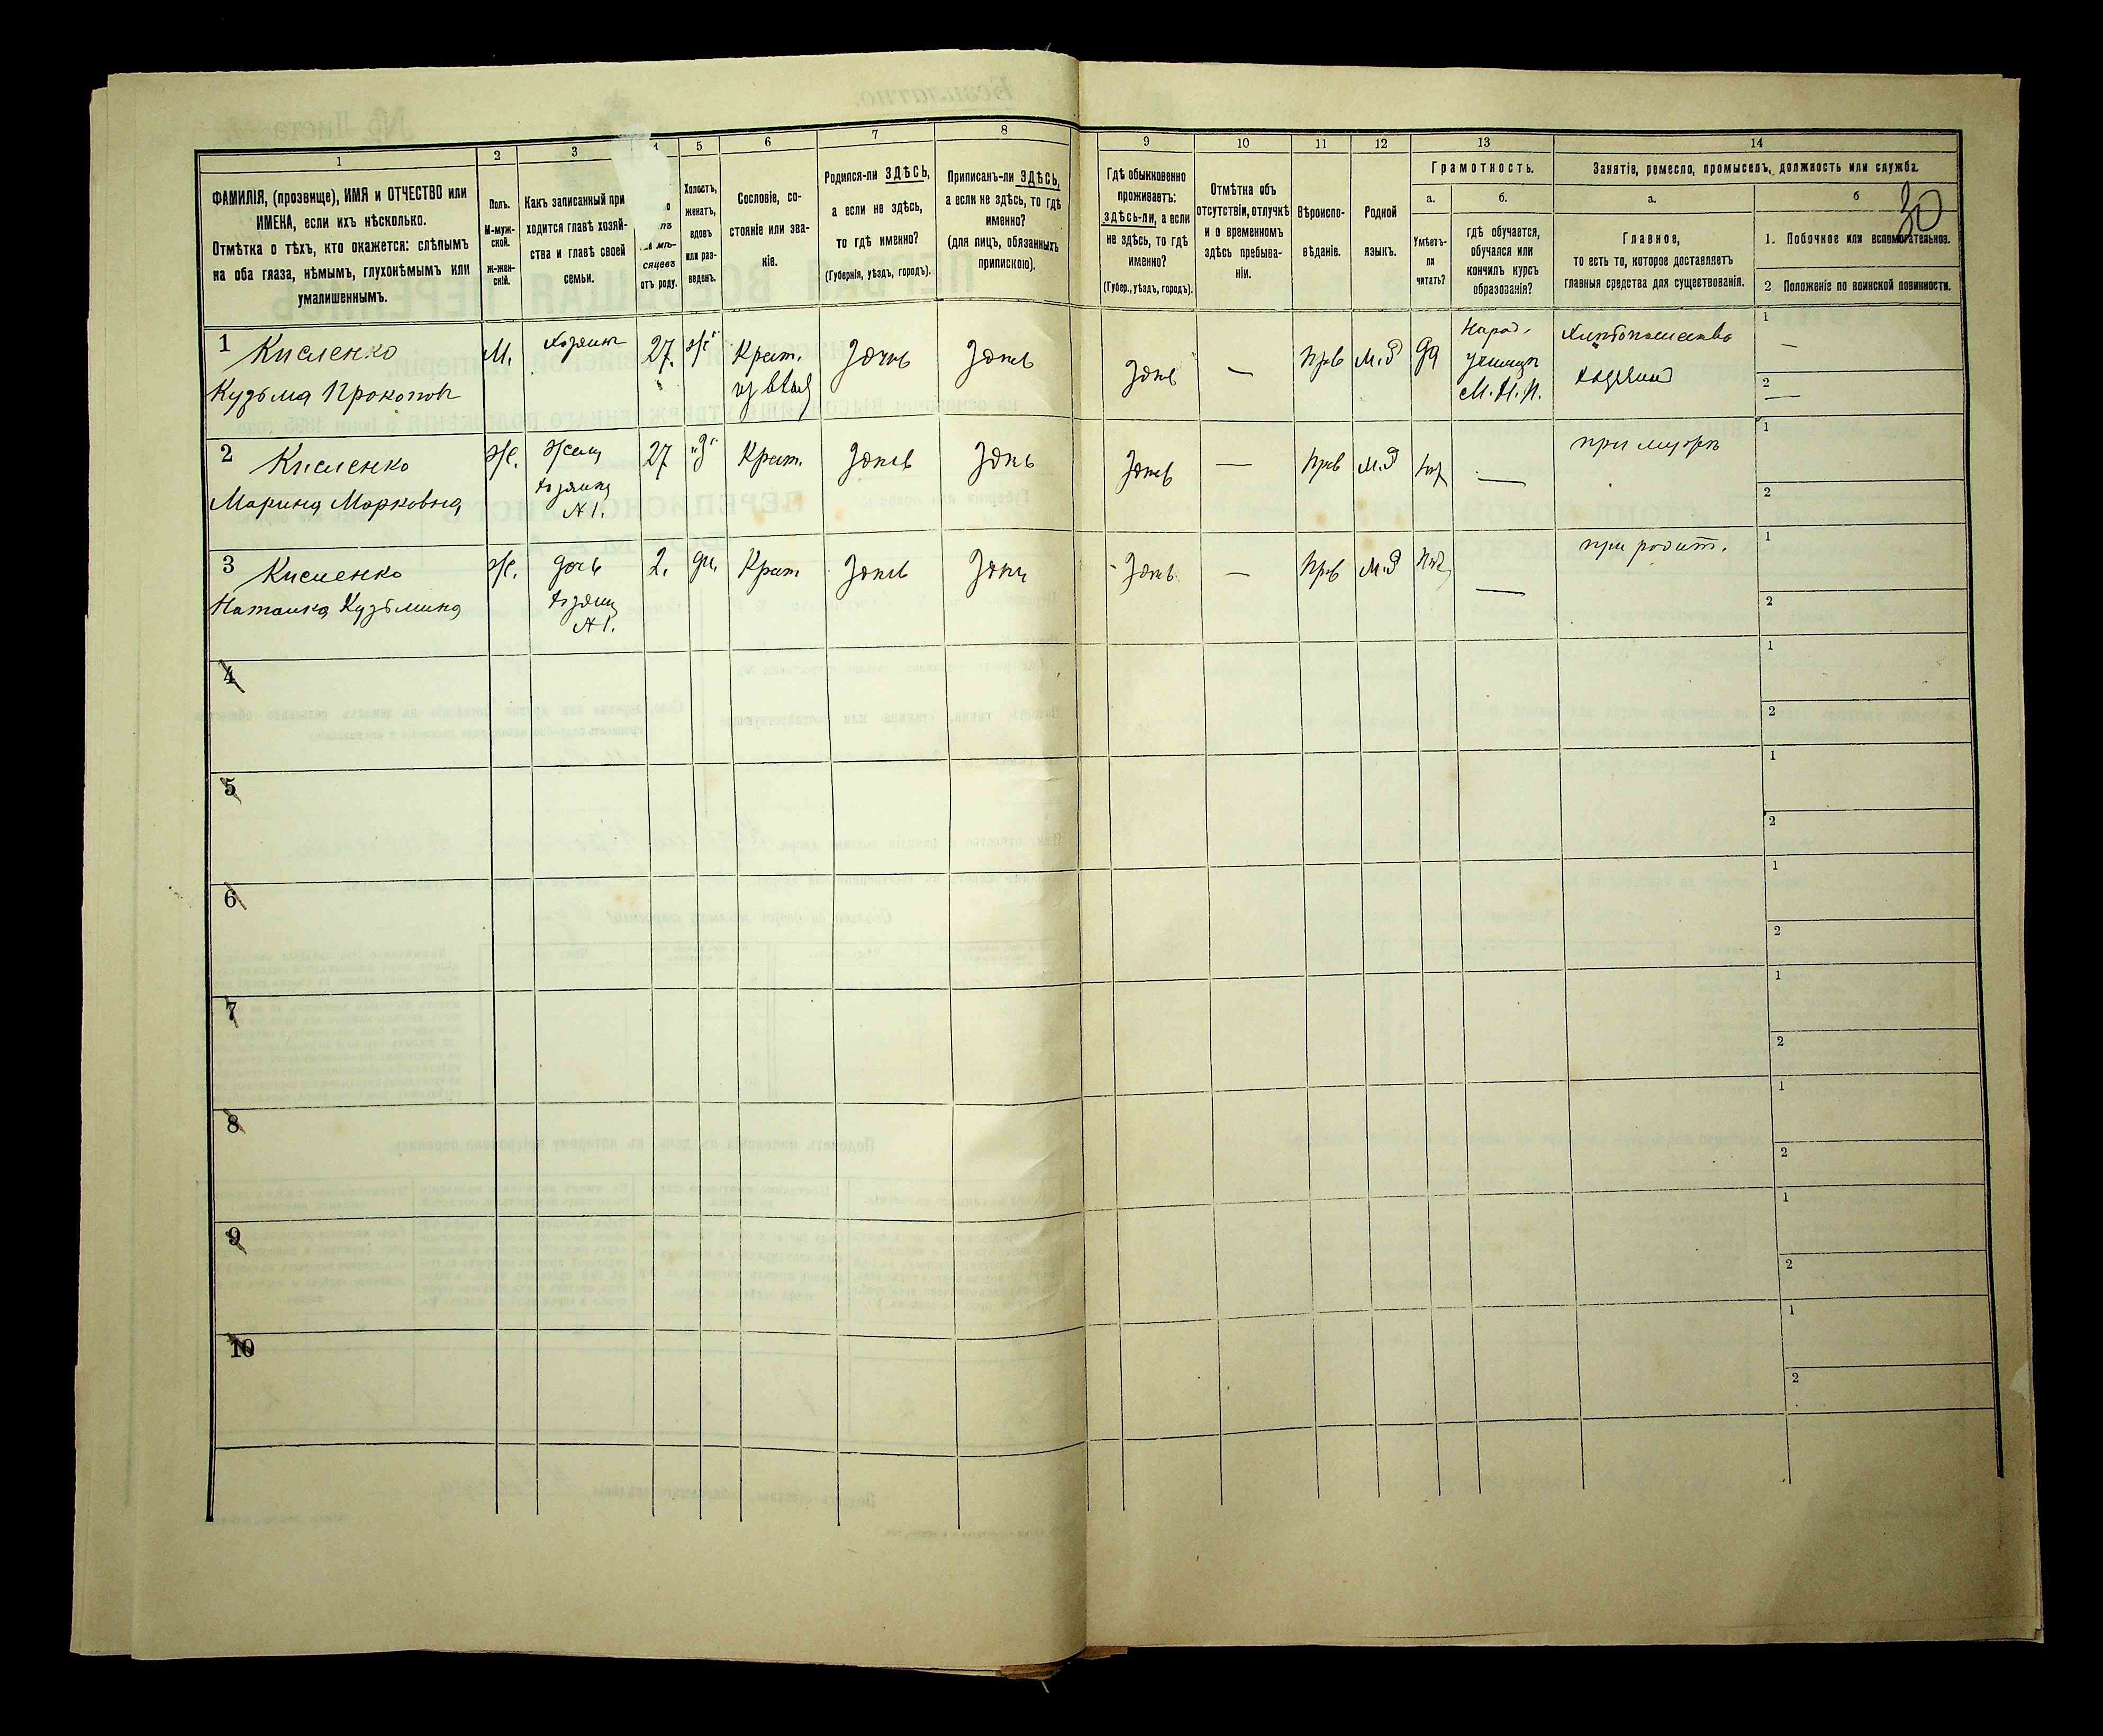 30
1
2
3
5
6
7
8
ФАМИЛІЯ, (прозвище), ИМЯ и ОТЧЕСТВО или
ИМЕНА, если ихъ нѣсколько.
Отмѣтка о тѣхъ, кто окажется: слѣпымъ
на оба глаза, нѣмымъ, глухонѣмымъ или
умалишеннымъ.
Полъ.
М-муж-
ской.
Ж-жен-
скій.
Какъ записанный при
ходится главѣ хозяй-
ства и главѣ своей
семьи.
сяцевъ
отъ роду.
Холостъ,
женатъ,
вдовъ
или раз-
веденъ.
Сословіе, со-
стояніе или зва-
ніе.
Родился-ли ЗДѢСЬ,
а если не здѣсь,
то гдѣ именно?
(Губернія, уѣздъ, городъ).
Приписанъ-ли ЗДѢСЬ,
а если не здѣсь, то гдѣ
именно?
(для лицъ, обязанныхъ
припискою).
9
10
11
12
13
14
Гдѣ обыкновенно
проживаетъ:
ЗДѢСЬ-ЛИ, а если
не здѣсь, то гдѣ
именно?
(Губер., уѣздъ, городъ).
Отмѣтка объ
отсутствіи, отлучкѣ
и о временномъ
здѣсь пребыва-
ніи.
Вѣроиспо-
вѣданіе.
Родной
языкъ.
Грамотность.
а.
Умѣетъ-
ли
читать?
б.
гдѣ обучается,
обучался или
кончилъ курсъ
образованія?
Занятія, ремесло, промыселъ, должность или служба.
а.
Главное,
то есть то, которое доставляетъ
главныя средства для существованія.
б
1. Побочное или вспомогательное.
2 Положеніе по воинской повинности.
1 Кисленко
Кузьма Прокопов
М.
Хозяин
27.
Крест.
Здѣсь
Здѣсь
Здѣсь
—
Прав
М.Р
да
Народ.
училищ
М.Н.П.
Хозяин
1
—
2
—
2 Кисленко
Марина Марковна
Ж.
Жена
хозяина
№ 1.
27
"З"
Крест.
Здѣсь
Здѣсь
Здѣсь
—
Прав
М.Р
нѣт
—
при муже
1
2
3 Кисленко
Наталка Кузьмина
Ж.
дочь
хозяина
№ 1.
2.
дѣ.
Крест
Здѣсь
Здѣсь
Здѣсь
—
Прав
М.Р
Нѣт
—
при родит.
1
2
4
1
2
5
1
2
6
1
2
7
1
2
8
1
2
9
1
2
10
1
2